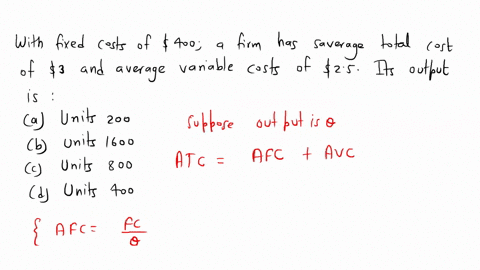 With fixed costs of $400; a firm has saverage total cost
of $3 and average variable costs of $2.5. Its output
is :
(a) Units 200
(b) Units 1600
(c) Units 800
(d) Units 400
Suppose output is θ
ATC = AFC + AVC
{ AFC = FC/θ